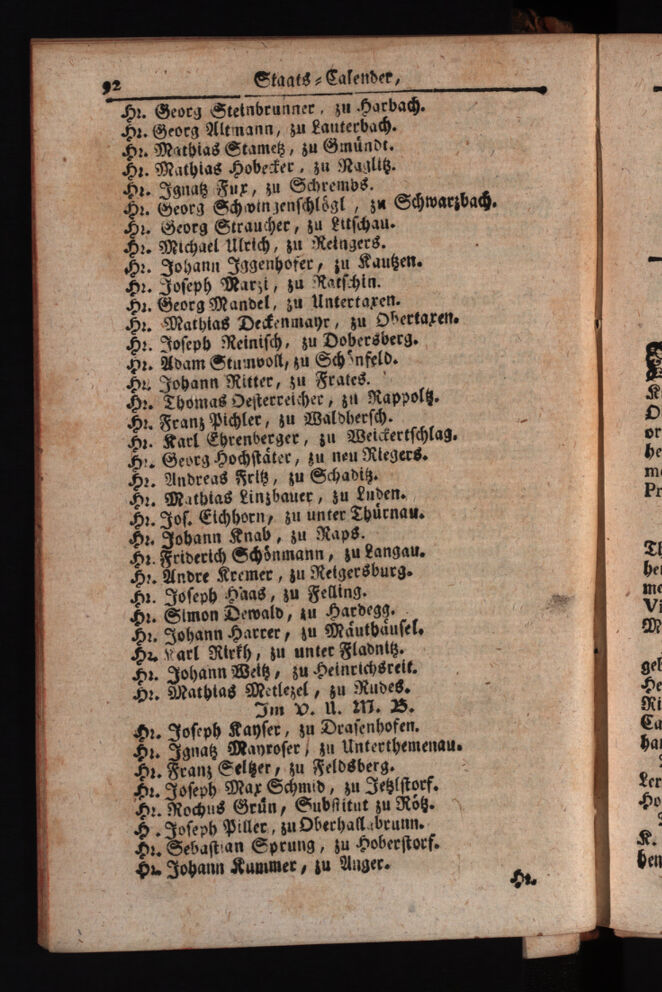 92 Staats-Calender,
Hr. Georg Steinbrunner, zu Harbach.
Hr. Georg Altmann, zu Lauterbach.
Hr. Mathias Stametz, zu Gmündt.
Hr. Mathias Hobecker, zu Naglitz.
Hr. Ignatz Fux, zu Schrembs.
Hr. Georg Schwingenschlögl, zu Schwarzbach.
Hr. Georg Straucher, zu Litschau.
Hr. Michael Ulrich, zu Reingers.
Hr. Johann Iggenhofer, zu Kautzen.
Hr. Joseph Marzi, zu Ratschin.
Hr. Georg Mandel, zu Untertaxen.
Hr. Mathias Deckenmayr, zu Obertaxen.
Hr. Joseph Reinisch, zu Dobersberg.
Hr. Adam Stumvoll, zu Schönfeld.
Hr. Johann Ritter, zu Frates.
Hr. Thomas Oesterreicher, zu Rappoltz.
Hr. Franz Pichler, zu Waldhersch.
Hr. Karl Ehrenberger, zu Weickertschlag.
Hr. Georg Hochstäter, zu neu Riegers.
Hr. Andreas Fritz, zu Schaditz.
Hr. Mathias Linzbauer, zu Luden.
Hr. Jos. Eichhorn, zu unter Thürnau.
Hr. Johann Knab, zu Raps.
Hr. Friderich Schönmann, zu Langau.
Hr. Andre Kremer, zu Reigersburg.
Hr. Joseph Haas, zu Felling.
Hr. Simon Dewald, zu Hardegg.
Hr. Johann Harrer, zu Mäuthäusel.
Hr. Karl Rirkh, zu unter Fladnitz.
Hr. Johann Weitz, zu Heinrichsreit.
Hr. Mathias Metlezel, zu Rudes.
Im V. U. M. B.
Hr. Joseph Kayser, zu Drasenhofen.
Hr. Ignatz Mayroser, zu Unterthemenau.
Hr. Franz Seltzer, zu Feldsberg.
Hr. Joseph Max Schmid, zu Jetzlstorf.
Hr. Rochus Grün, Substitut zu Rötz.
H. Joseph Piller, zu Oberhallabrunn.
Hr. Sebastian Sprung, zu Hoberstorf.
Hr. Johann Kummer, zu Anger.
Hr.